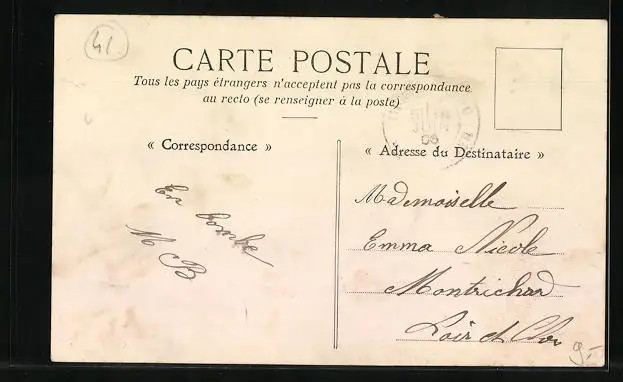 41.
CARTE POSTALE
Tous les pays étrangers n'acceptent pas la correspondance
au recto (se renseigner à la poste)
« Correspondance »
« Adresse du Destinataire »
Mademoiselle
Emma Nicole
Montrichard
Loir et Cher
En
M B
9.-